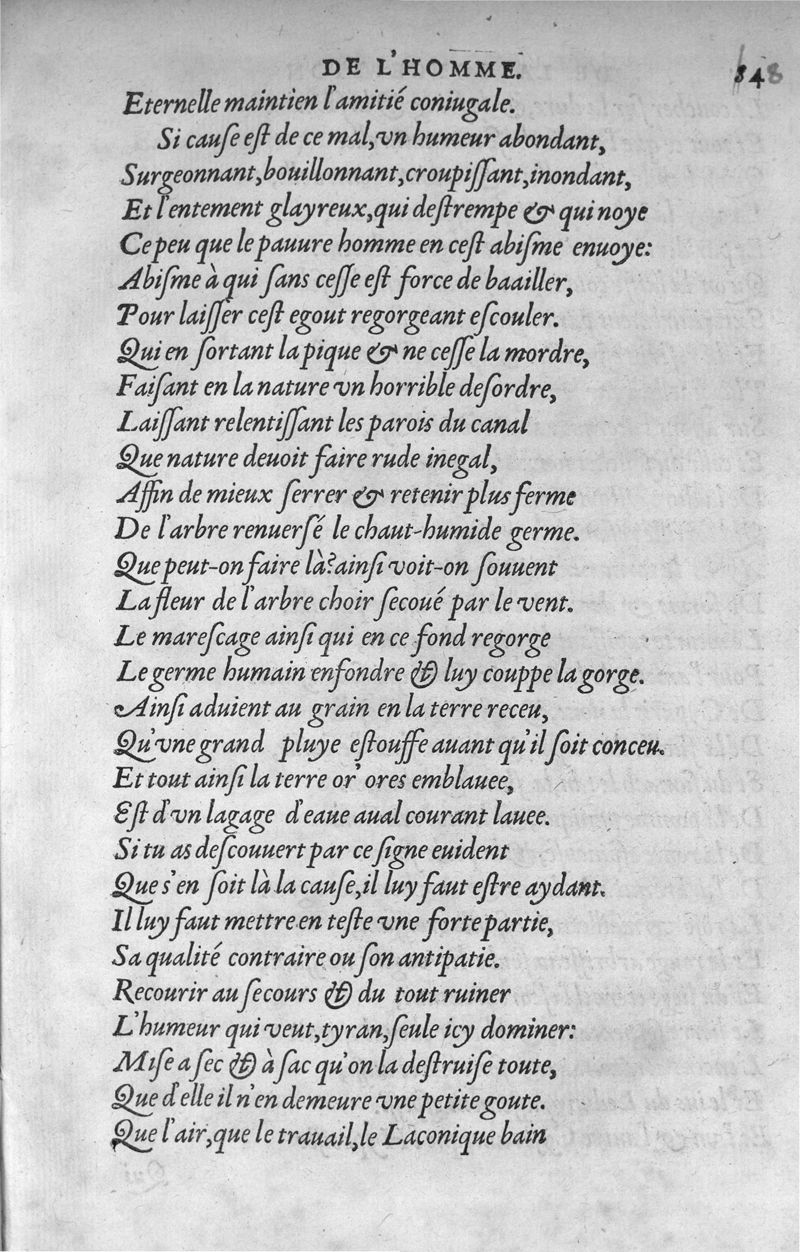 DE L'HOMME. 848
Eternelle maintien l'amitié coniugale.
Si cauſe eſt de ce mal, vn humeur abondant,
Surgeonnant, bouillonnant, croupiſſant, inondant,
Et l'entement glayreux, qui deſtrempe & qui noye
Ce peu que le pauure homme en ceſt abiſme enuoye:
Abiſme à qui ſans ceſſe eſt force de baailler,
Pour laiſſer ceſt egout regorgeant eſcouler.
Qui en ſortant la pique & ne ceſſe la mordre,
Faiſant en la nature vn horrible deſordre,
Laiſſant relentiſſant les parois du canal
Que nature deuoit faire rude inegal,
Affin de mieux ſerrer & retenir plus ferme
De l'arbre renuerſé le chaut-humide germe.
Que peut-on faire là? ainſi voit-on ſouuent
La fleur de l'arbre choir ſecoué par le vent.
Le mareſcage ainſi qui en ce fond regorge
Le germe humain enfondre & luy couppe la gorge.
Ainſi aduient au grain en la terre receu,
Qu'vne grand pluye eſtouffe auant qu'il ſoit conceu.
Et tout ainſi la terre or' ores emblauee,
Eſt d'vn lagage d'eaue aual courant lauee.
Si tu as deſcouuert par ce ſigne euident
Que s'en ſoit là la cauſe, il luy faut eſtre aydant.
Il luy faut mettre en teſte vne forte partie,
Sa qualité contraire ou ſon antipatie.
Recourir au ſecours & du tout ruiner
L'humeur qui veut, tyran, ſeule icy dominer:
Miſe a ſec & à ſac qu'on la deſtruiſe toute,
Que d'elle il n'en demeure vne petite goute.
Que l'air, que le trauail, le Laconique bain